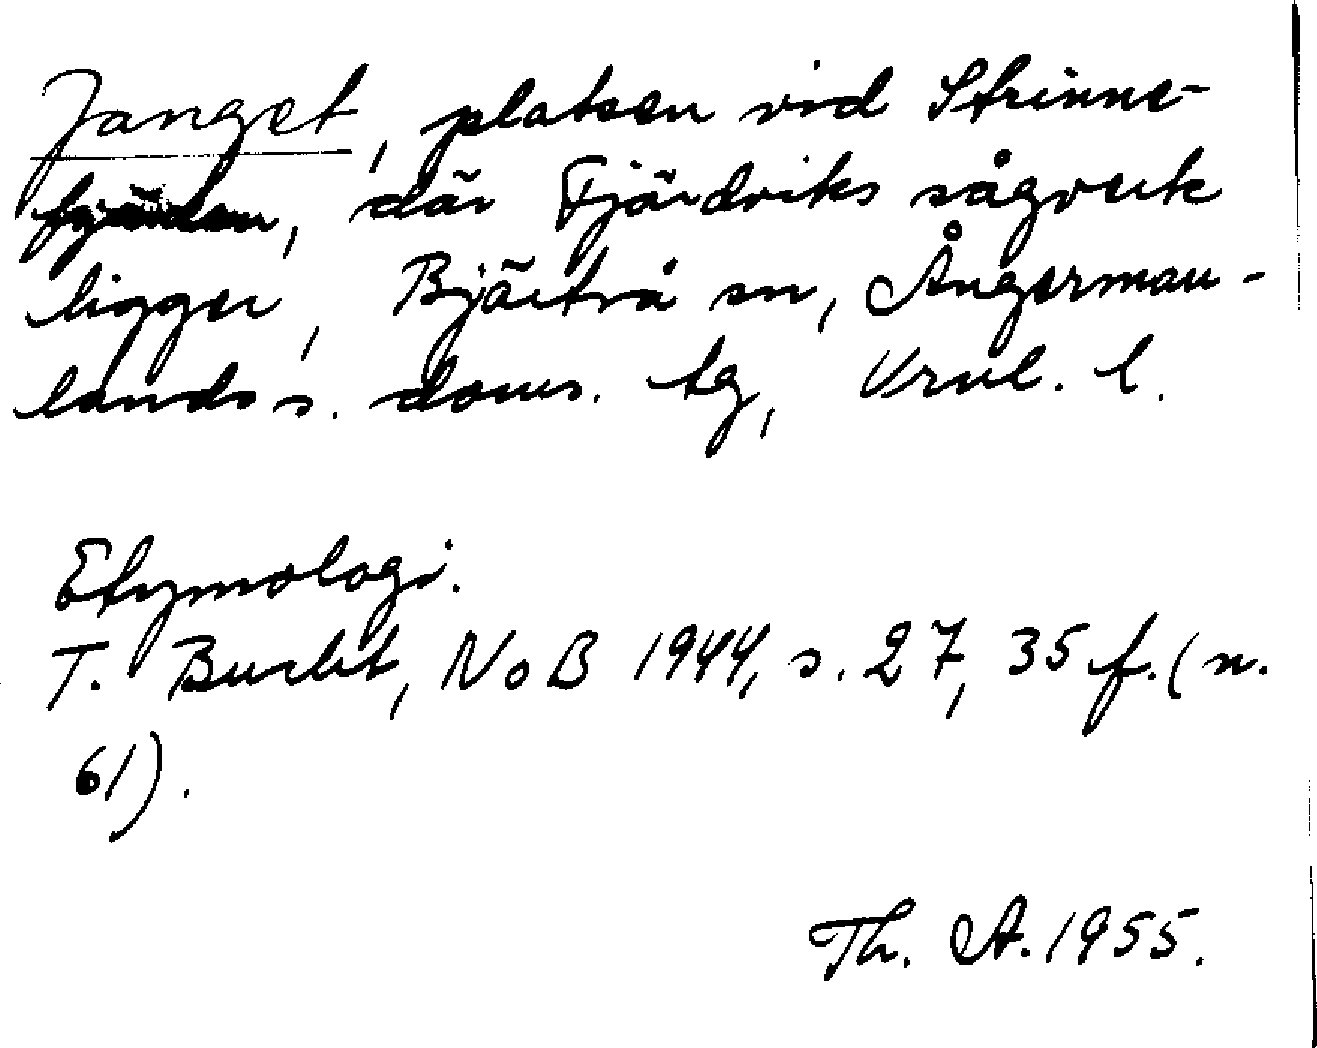 Janget, platsen vid Strinne-
fjärden, där Fjärdviks sågverk
ligger, Bjärtrå sn, Ångerman-
lands s. doms. tg, Vrnl. l.
Etymologi.
T. Bucht, NoB 1944, s. 27, 35 f. (n.
61).
Th. A. 1955.